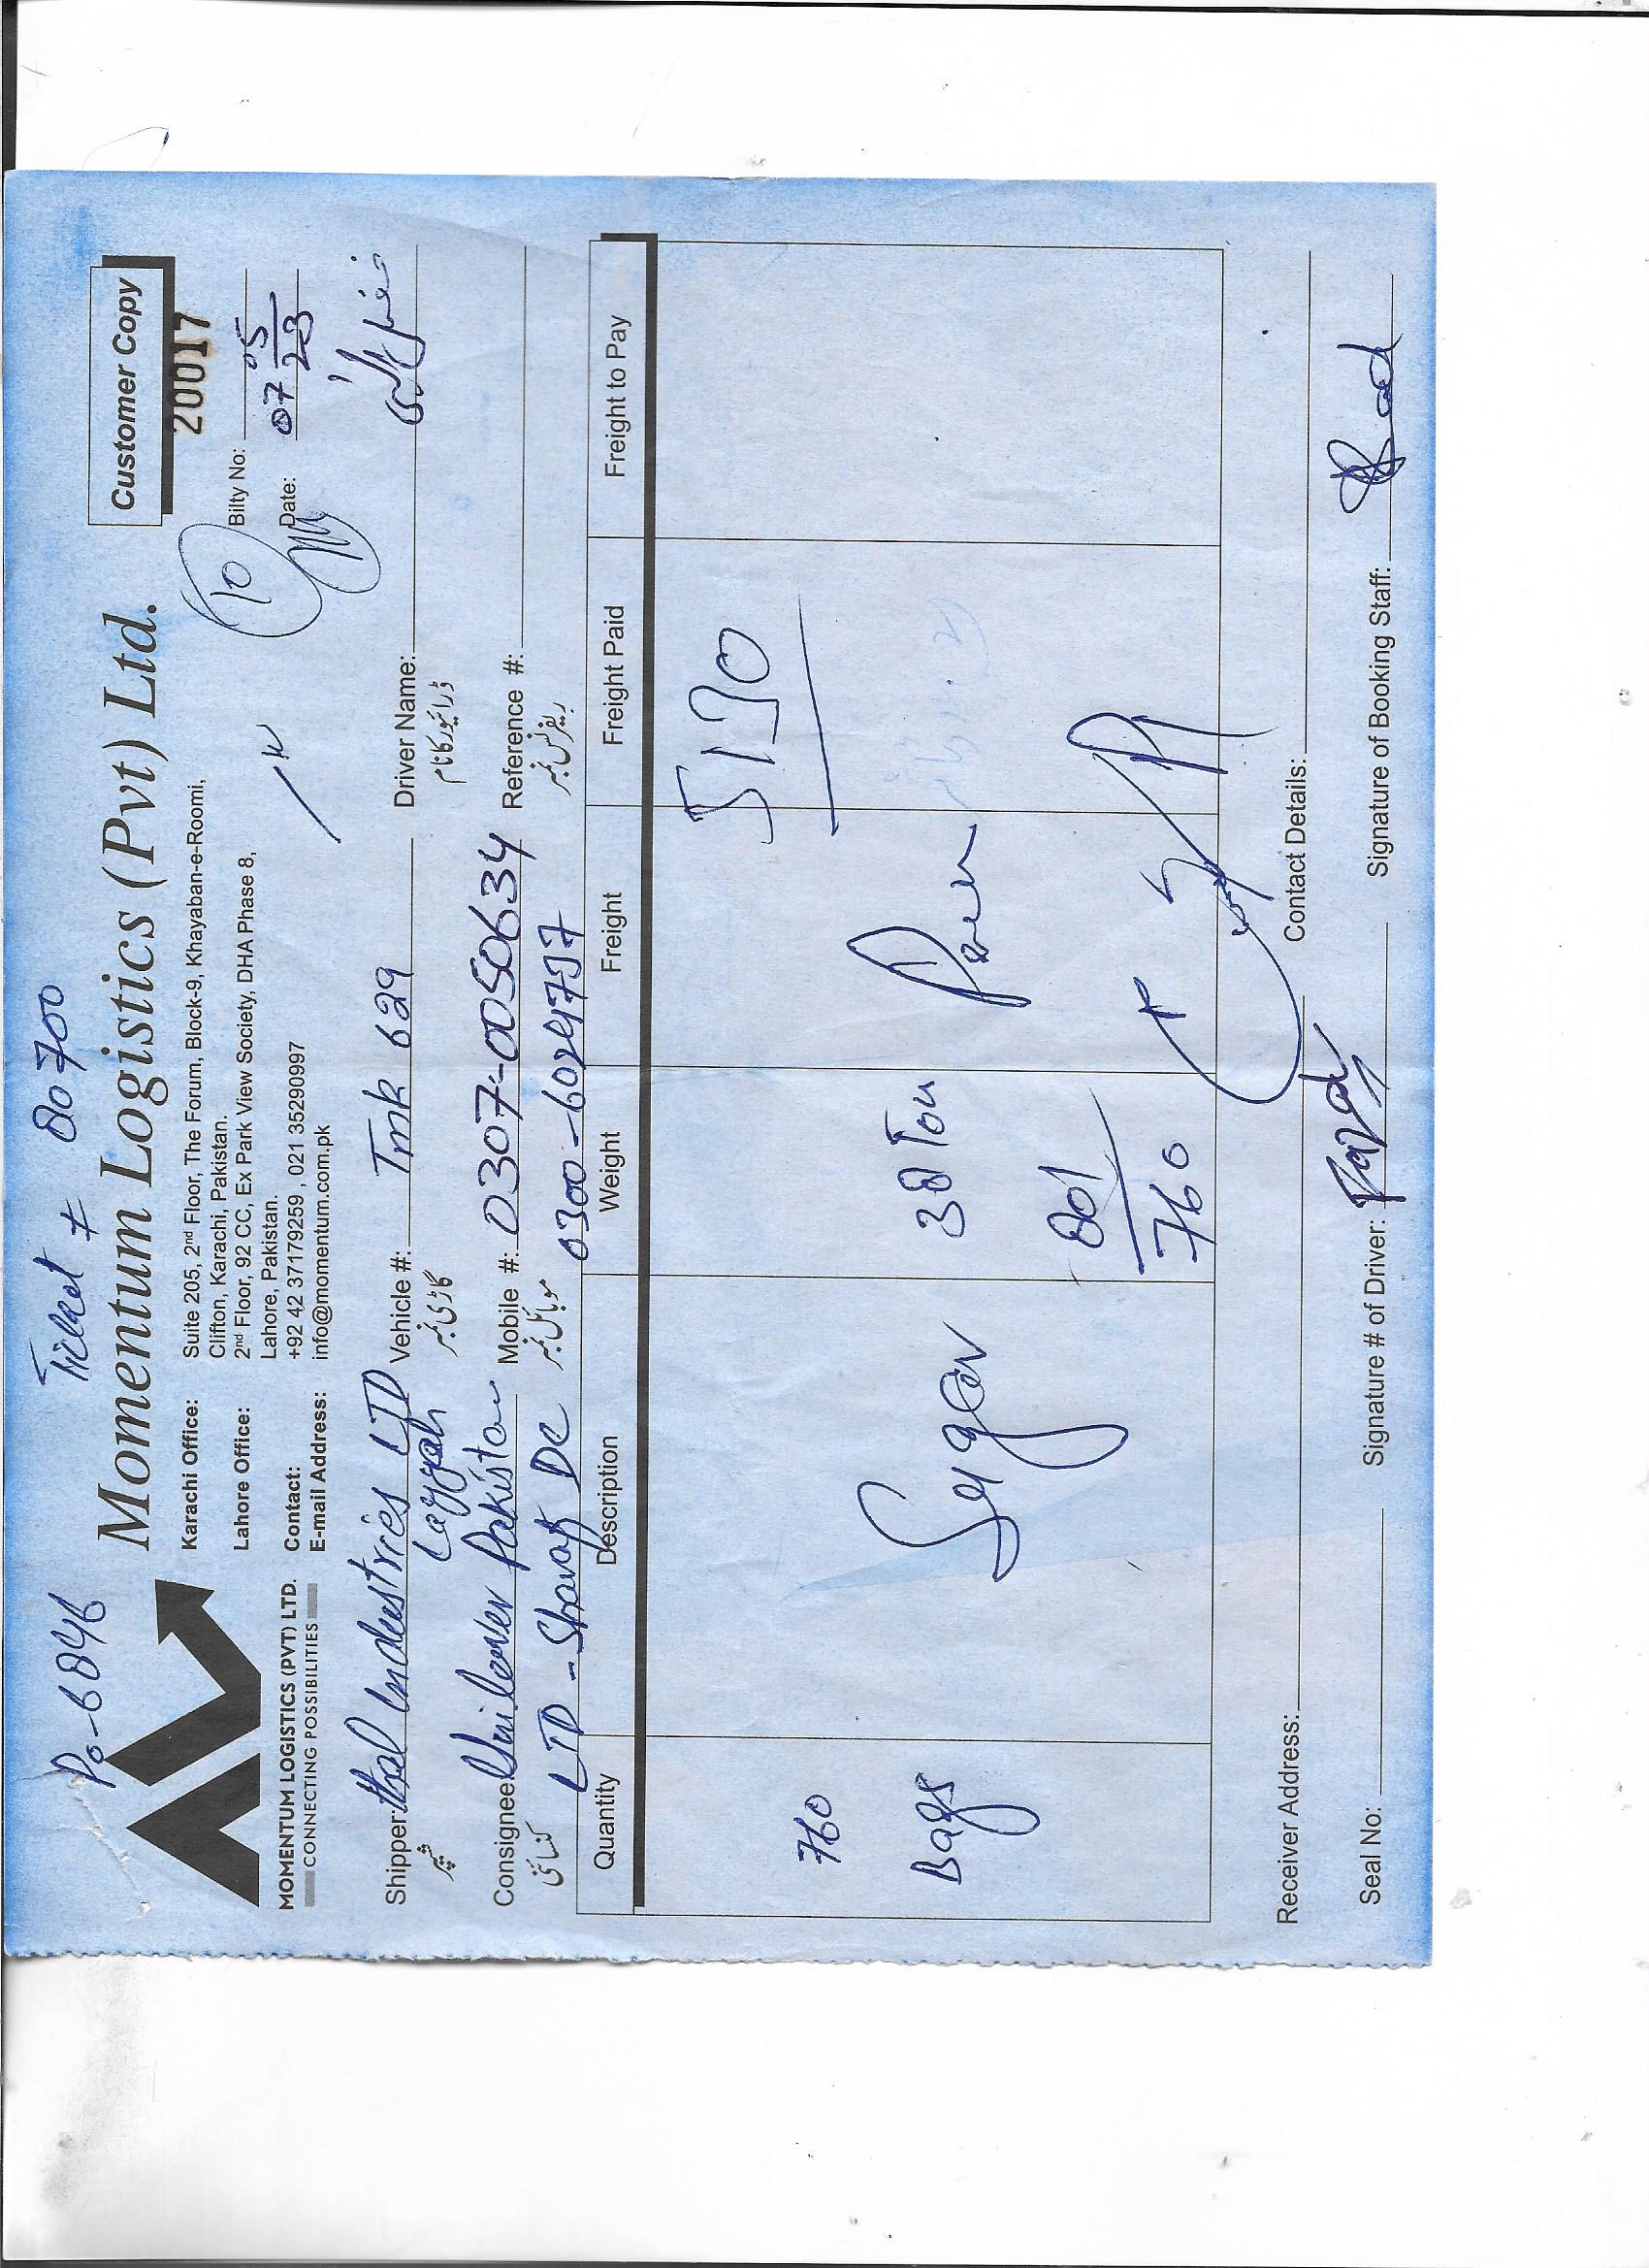 Po-6846
Ticket # 80700
Momentum Logistics (Pvt) Ltd.
Customer Copy
20017
MOMENTUM LOGISTICS (PVT) LTD.
CONNECTING POSSIBILITIES
Karachi Office: Suite 205, 2nd Floor, The Forum, Block-9, Khayaban-e-Roomi,
Clifton, Karachi, Pakistan.
Lahore Office: 2nd Floor, 92 CC, Ex Park View Society, DHA Phase 8,
Lahore, Pakistan.
Contact: +92 42 37179259 , 021 35290997
E-mail Address: info@momentum.com.pk
10
Bilty No:
Date: 07 05 23
Shipper: thal Industries LTD
شپر
Layyah
Vehicle #: Tmk 629
گاڑی نمبر
Driver Name:
ڈرائیور کا نام
Consignee Unilever Pakistan
کنسائنی
LTD - Sharaf DC
Mobile #: 0307-0050634
موبائل نمبر
0300-6029737
Reference #:
ریفرنس نمبر
Quantity Description Weight Freight Freight Paid Freight to Pay
5170
760
Bags
Sugar
38 Ton
801
760
Receiver Address:
Contact Details:
Seal No:
Signature # of Driver:
Signature of Booking Staff: